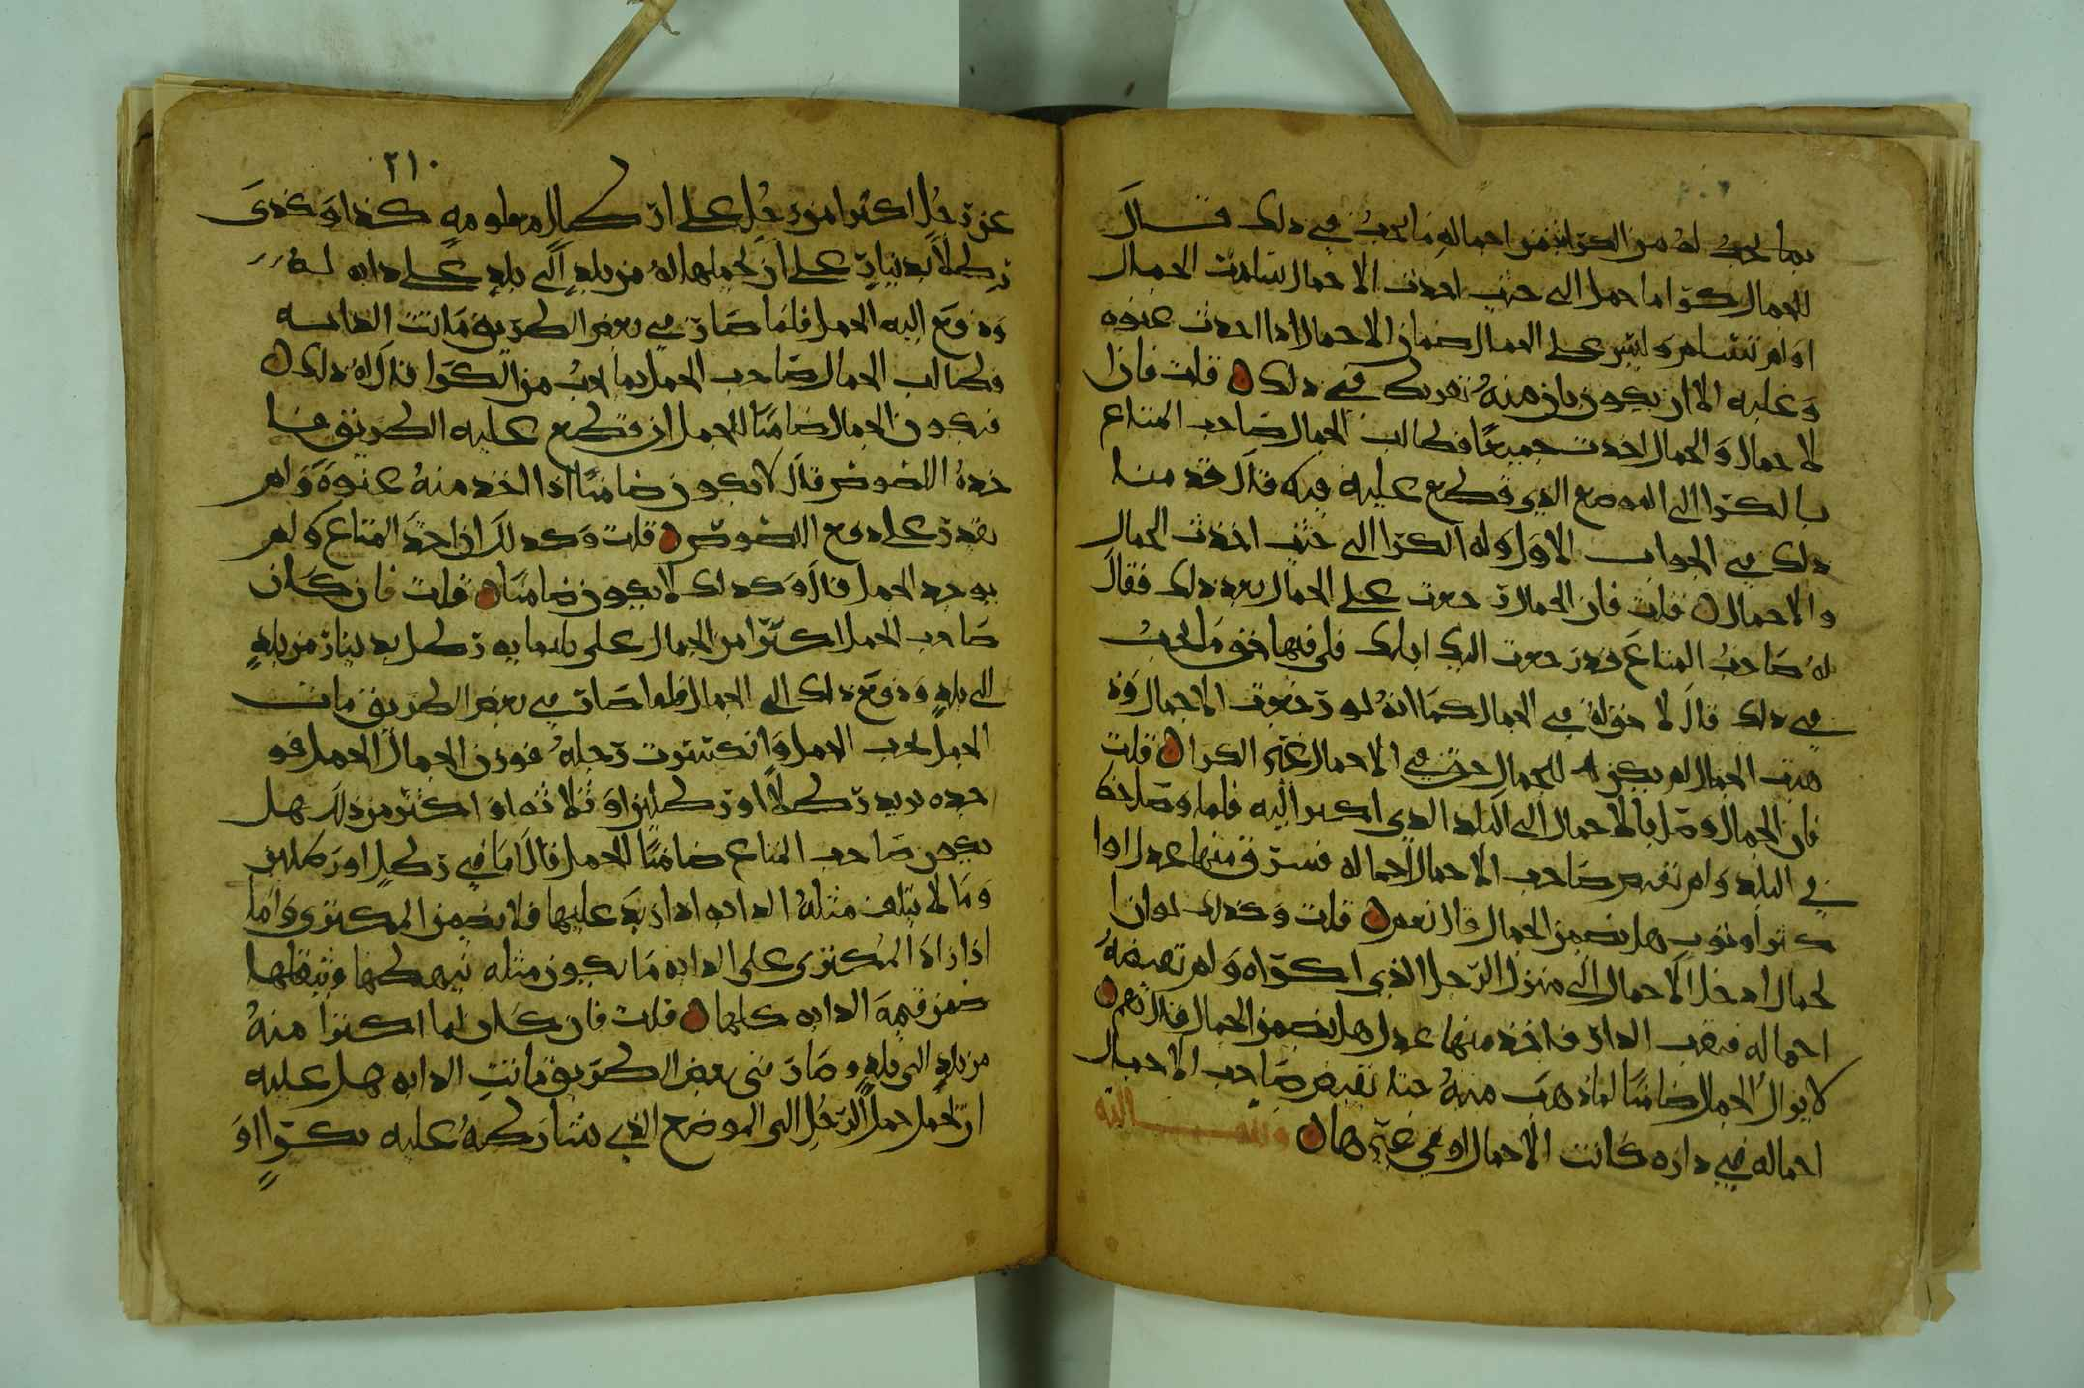 بما يجب له من الكرا ايضمن احماله ما يجب في ذلك قال
للجمال كرا ما حمل الى حيث اخذت الاحمال سلمت الجمال
او لم تسلم وليس على الجمال ضمان الاحمال اذا اخذت عنوه
وعليه الا ان يكون بان منه تفريط في ذلك قلت فان
لاحمال والجمال اخذت جميعا فطالب الجمال صاحب المتاع
بالكرا الى الموضع الذي قطع عليه فيه قال قدمنا
ذلك في الجواب الاول وله الكرا الى حيث اخذت الجمال
والاحمال قلت فان الجمال رجعت على الجمال بعد ذلك فقال
له صاحب المتاع قد رجعت اليك ابلك فلي فيها حق ما يجب
في ذلك قال لا حق له في الجمال كما انه لو رجعت الاحمال وذ
هبت الجمال لم يكن للجمال حق في الاحمال غير الكرا قلت
فان الجمال وصل بالاحمال الى البلد الذي اكترا اليه فلما وصل حط
في البلد ولم يقبض صاحب الاحمال احماله فسرق منها عدل او ا
كثر او ثوب هل يضمن الجمال قال نعم قلت وكذلك لو ان ا
لجمال ادخل الاحمال الى منزل الرجل الذي اكتراه ولم تقبضه
احماله فنقب الدار فاخذ منها عدل هل يضمن الجمال قال نعم
لا يزال الجمال ضامنا لما ذهب منه حتا يقبض صاحب الاحمال
احماله في داره كانت الاحمال او في غيرها
٢١٠
عن رجل اكترا من رجل على ارطال معلومه كذا وكذى
رطلا بدينار على ان يحملها له من بلد الى بلد على دابه له
ودفع اليه الحمل فلما صار في بعض الطريق ماتت الدابه
فطالب الجمال صاحب الحمل بما يجب من الكرا قال له ذلك
فيكون الجمال ضامنا للحمل ان قطع عليه الطريق فا
خذه اللصوص قال لا يكون ضامنا اذا اخذ منه عنوه ولم
يقدر على دفع اللصوص قلت وكذلك ان اخذ المتاع ولم
يوجد الحمل قال وكذلك لا يكون ضامنا قلت فان كان
صاحب الحمل اكترا من الجمال على ثلثمايه رطل بدينار من بلد
الى بلد ودفع ذلك الى الجمال فلما صار في بعض الطريق مات
الجمل تحت الحمل وانكسرت رجله فوزن الجمال الحمل فو
جده يزيد رطلا او رطلين او ثلاثه او اكثر من ذلك هل
يكون صاحب المتاع ضامنا للحمل قال اما في رطل او رطلين
وما لا يتلف مثله الدابه اذا زيد عليها فلا يضمن المكتري واما
اذا زاد المكتري على الدابه ما يكون مثله يبهضها ويثقلها
ضمن قيمة الدابه كلها قلت فان كان انما اكترا منه
من بلد الى بلد وصار في بعض الطريق فماتت الدابه هل عليه
ان يحمل حمل الرجل الى الموضع الذي شارطه عليه بكرا او